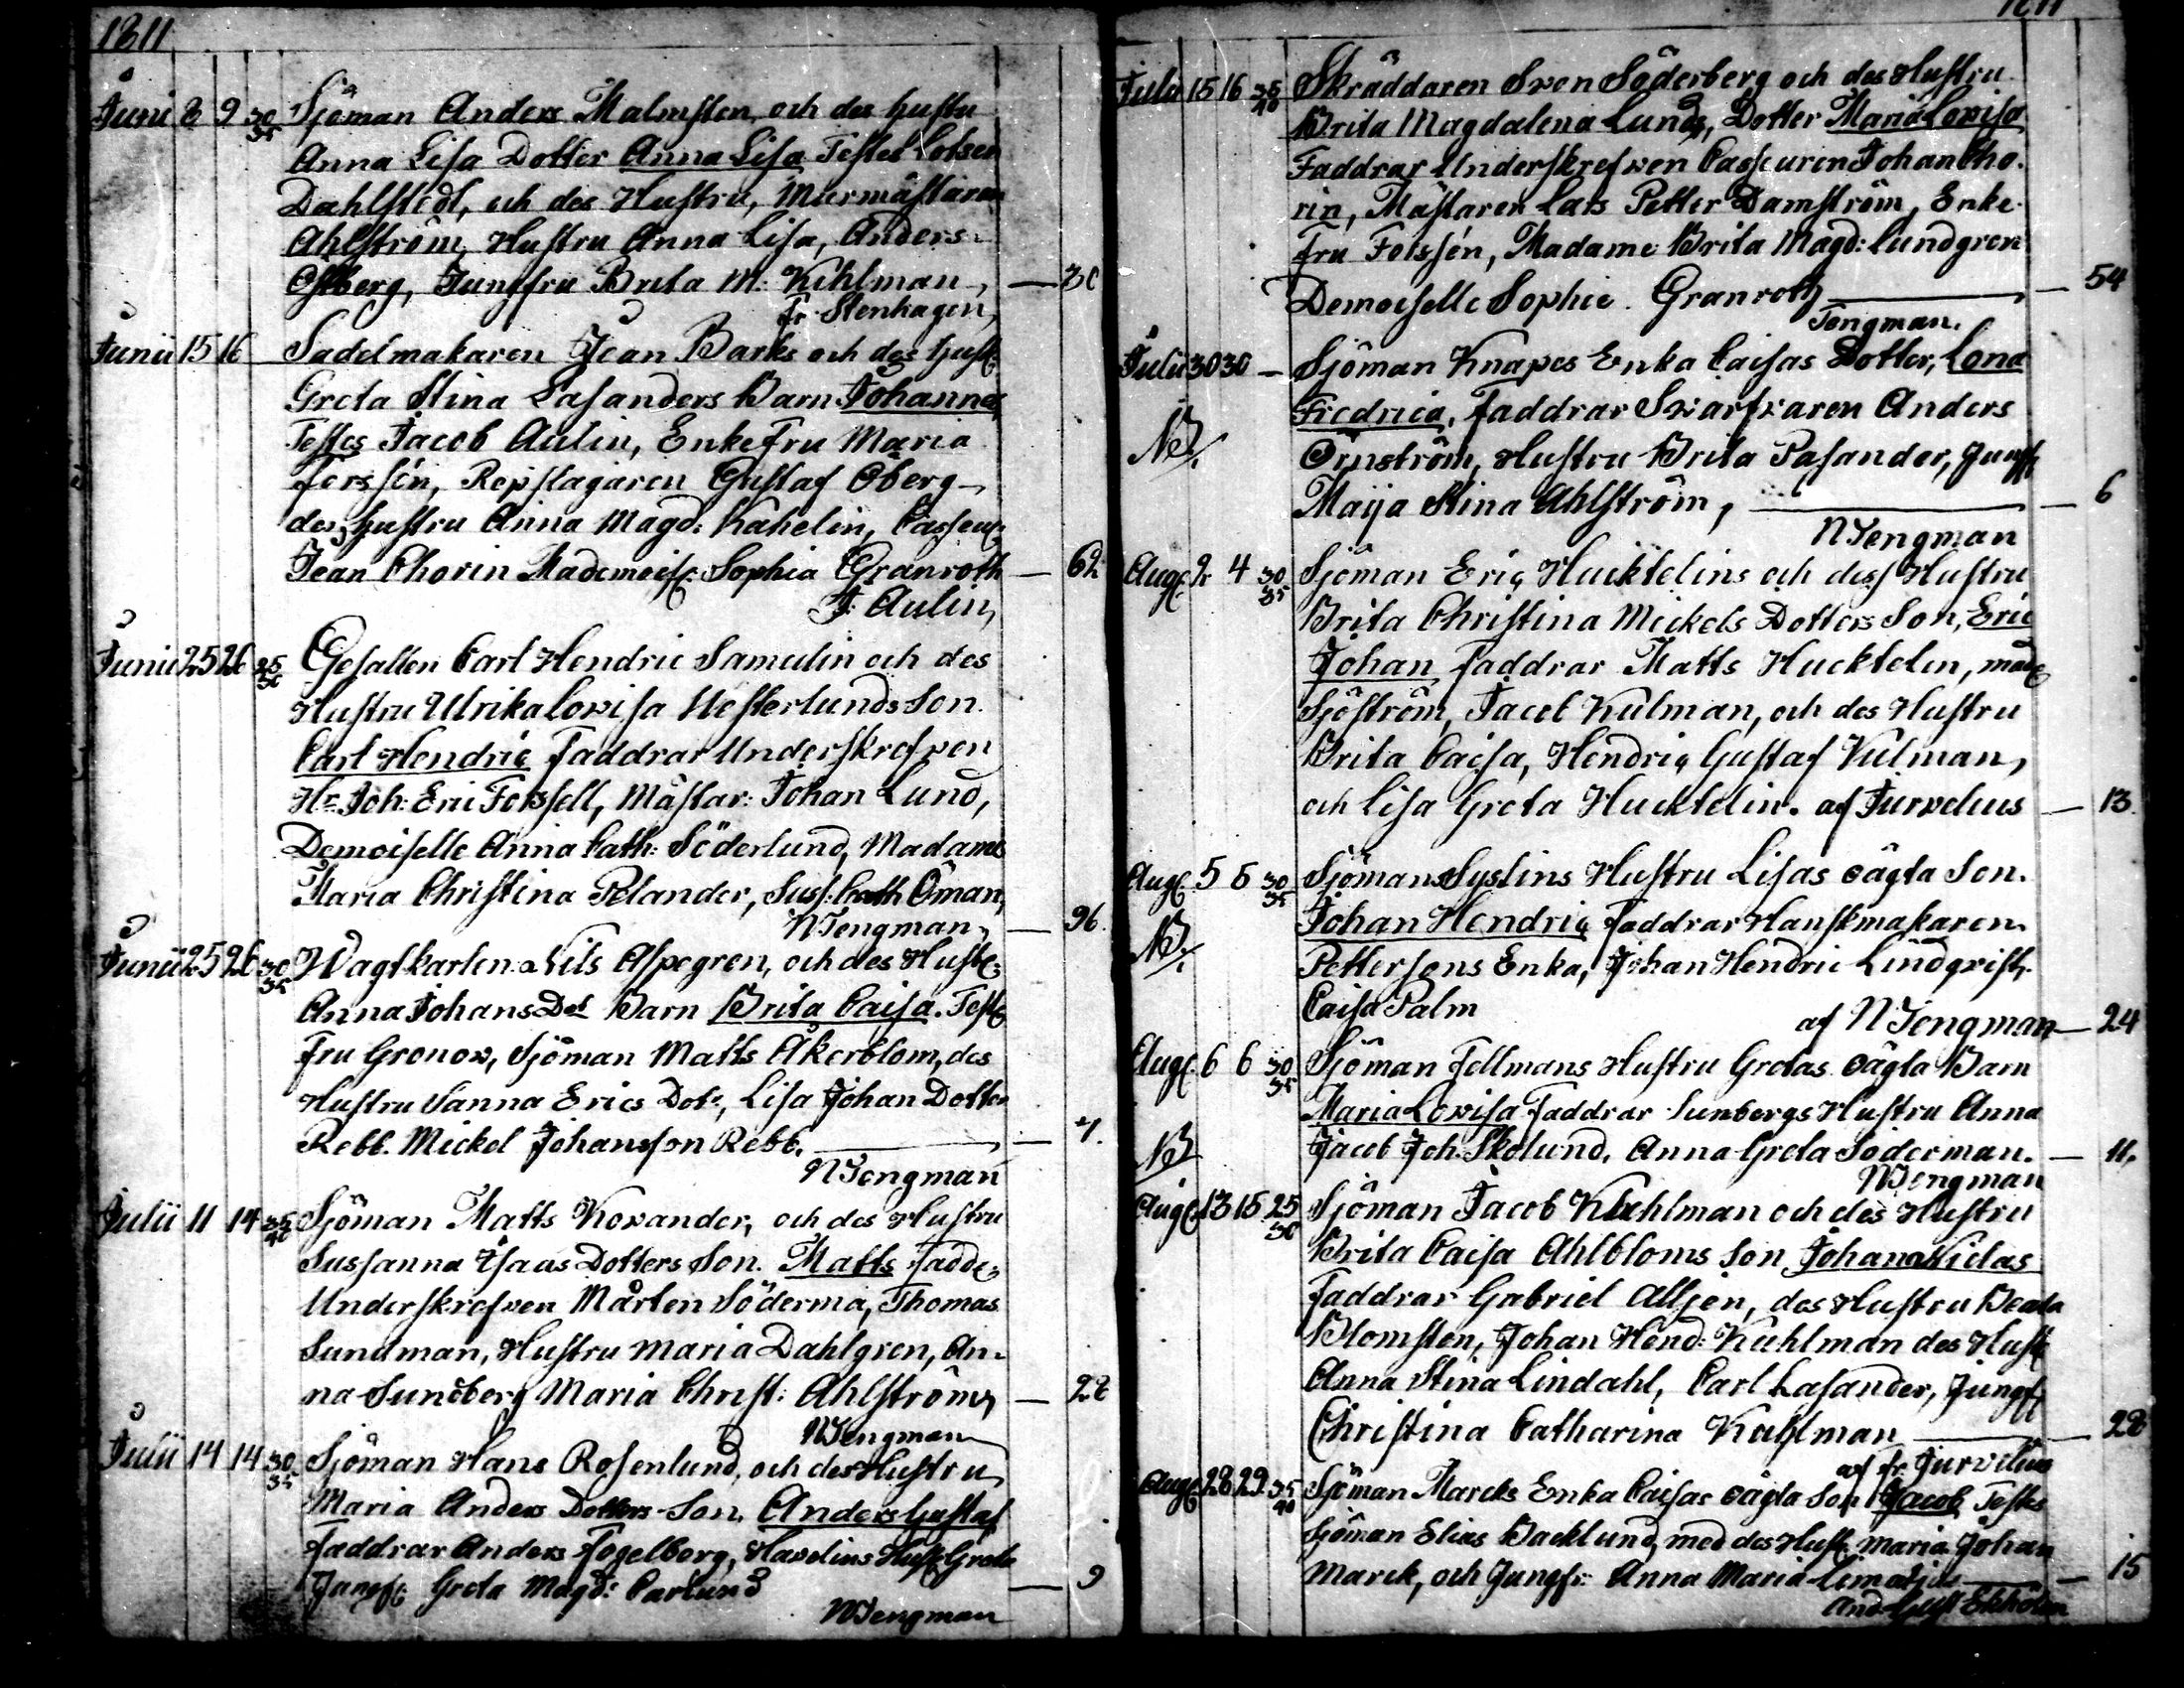 1811
Juni 8 9 30/35 Sjöman Anders Malmsten, och des hustu
Anna Lisa Dotter Anna Lisa Testes Lotsen
Dahlstedt, och des Hustru, Murmästaren
Ahlström, Hustru Anna Lisa, Anders
Ostberg, Jungfru Brita M: Kihlman, —
fr. Stenhagen,
Junii 15 16 Sadelmakaren Jean Barks och des hust:
Greta Stina Lasanders Barn Johannes
Testes Jacob Aulin, Enkefru Maria
Forssén, Repslagaren Gustaf Öberg
des hustru Anna Magd: Kahelin, Casseur
Jean Chorin Mademois: Sophia Granroth — 62
J: Aulin,
Junii 25 26 25/30 Gesällen Carl Hendric Samulin och des
Hustru Ulrika Lovisa Westerlunds Son
Carl Hendric Faddrar Underskrefven
Hr Joh: Eric Forssell, Mästar: Johan Lund,
Demoiselle Anna Cath: Söderlund, Madame
Maria Christina Pelander, Suss: Cath Öman,
N Tengman, — 96.
Junii 25 26 30/35 Wagtkarlen Nils Alpegren, och des Hustr:
Anna Johans Dot Barn Brita Caisa. Test:
Fru Gronow, Sjöman Matts Åkerblom, des
Hustru Sanna Erics Dotr, Lisa Johan Dotter
Rebb. Mickel Johansson Rebb. — 7.
N Tengman
Julii 11 14 35/40 Sjöman Matts Kovander, och des Hustru
Sussanna Isaas Dotters Son. Matts Fadde:
Underskrefven Mårten Söderma, Thomas
Sundman, Hustru Maria Dahlgren, An-
na Sundberg Maria Christ: Ahlström, — 28
N Tengman
Julii 14 14 30/35 Sjöman Hans Rosenlund, och des Hustru
Maria Anders Dotters Son, Anders Gustaf
Faddrar Anders Fogelberg, Havelins Hust: Greta
Jungf: Greta Magd: Carlund — 9
N Tengman
1811
Julii 15 16 35/40 Skräddaren Sven Söderberg och des Hustru
Brita Magdalena Lunds, Dotter Maria Lovisa
Faddrar Underskrefven Casseuren Johan Cho-
rin, Mästaren Lars Petter Damström, Enke-
fru Forssén, Madame Brita Magd: Lundgren
Demoiselle Sophie Granroth — 54
Tengman.
Julii 30 30 — Sjöman Knapes Enka Caisas Dotter, Lena
Fredrica, Faddrar Svarfvaren Anders
NB. Örnström, Hustru Brita Pasander, Jungf:
Maija Stina Ahlström, — 6
N Tengman
Aug: 2 4 30/35 Sjöman Eric Hucktelins och dess Hustru
Brita Christina Mickels Dotters Son, Eric
Johan Faddrar Matts Hucktelin, mad:
Sjöström, Jacob Kulman, och des Hustru
Brita Caisa, Hendric Gustaf Kulman,
och Lisa Greta Hucktelin. af Jurvelius — 13.
Aug: 5 6 30/35 Sjömans Syslins Hustru Lisas oägta Son.
NB. Johan Hendric Faddrar Hanskmakaren
Pettersons Enka, Johan Hendric Lindqvist,
Caisa Palm
af N Tengman — 24
Aug: 6 6 30/35 Sjöman Fellmans Hustru Gretas oägta Barn
Maria Lovisa Faddrar Sunbergs Hustru Anna
NB Jacob Joh: Skolund, Anna Greta Söderman. — 11,
N Tengman
Aug: 13 15 25/30 Sjöman Jacob Kuhlman och des Hustru
Brita Caisa Ahlbloms Son, Johan Niclas
Faddrar Gabriel Alljen, des Hustru Beata
Blomsten, Johan Hend: Kuhlman des Hust:
Anna Stina Lindahl, Carl Lasander, Jungf:
Christina Catharina Kuhlman — 28
af fr. Jurvelius
Aug: 28 29 35/40 Sjöman Marcks Enka Caisas oägta Son Jacob Testes
Sjöman Elias Backlund, med des Hust: Maria, Johan
Marck, och Jungfr: Anna Maria — 15
And: Gust Ekholm